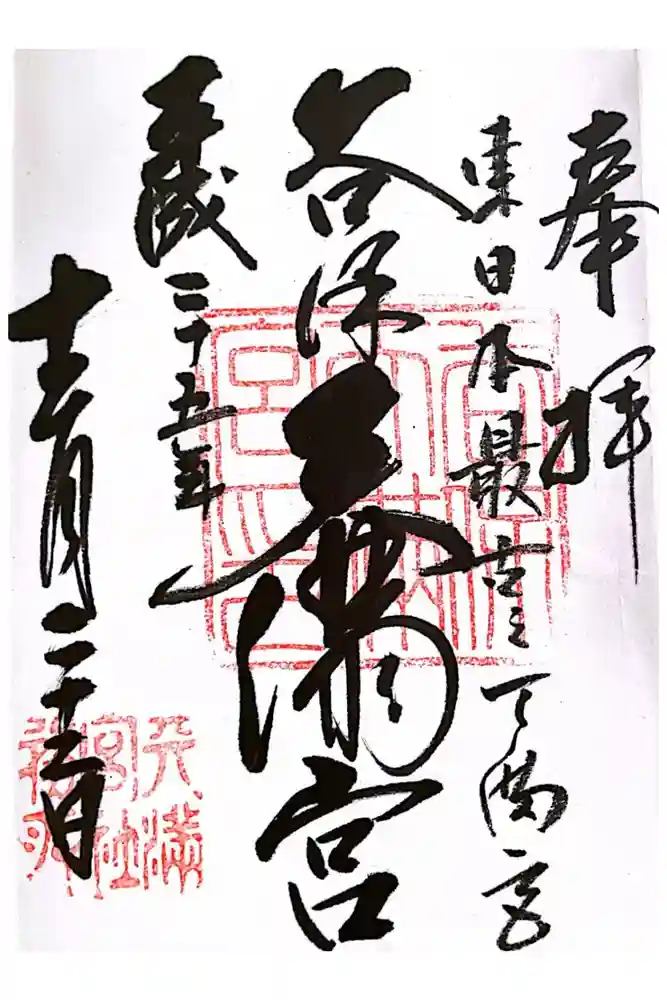 奉拝
東日本最古之天満宮
谷保天満宮
平成二十五年
十二月二十三日
谷保
天満
宮印
天満
宮社